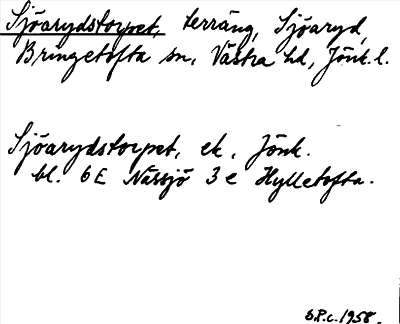 Sjöarydstorpet, terräng, Sjöaryd,
Bringetofta sn, Västra hd, Jönk. l.
Sjöarydstorpet, ek, Jönk.
bl. 6E Nässjö 3 e Hylletofta.
S.P.c. 1958.